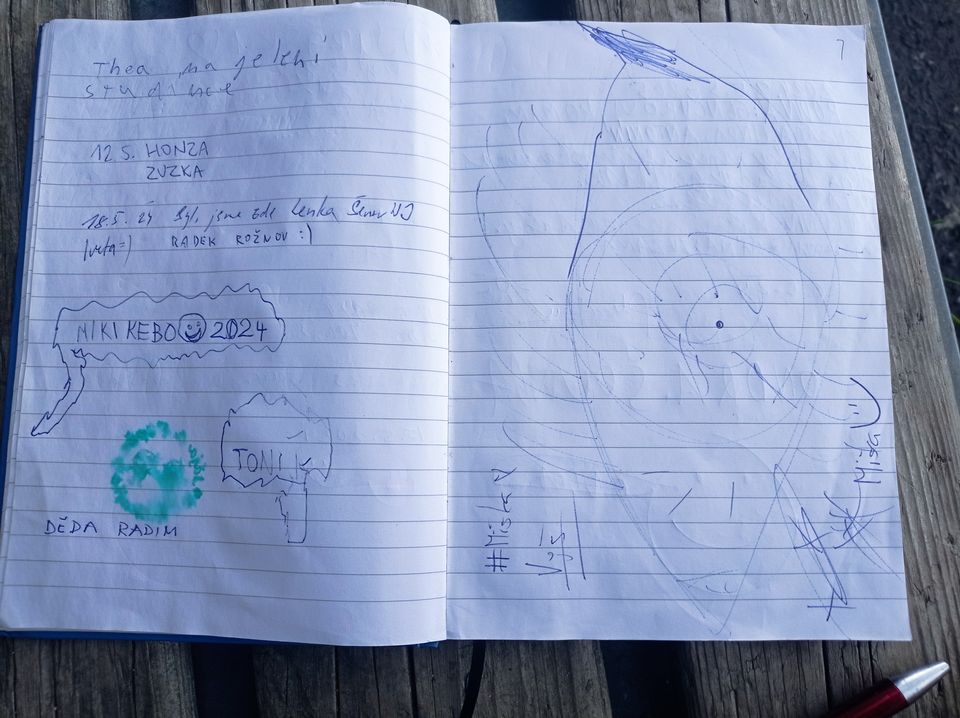 Thea na jelení
studánce
12 5. HONZA
ZUZKA
18.5. 24 Byli jsme zde Lenka
RADEK ROŽNOV :)
NIKI KEBO 2024
TONIK
DĚDA RADIM
7
#Miska
Míša